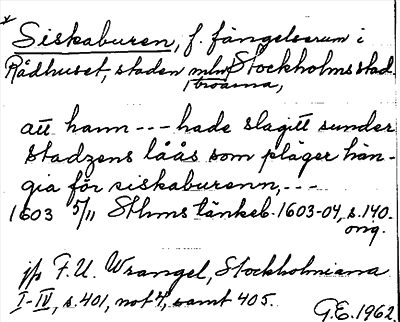 Siskaburen, f. fängelserum i
Rådhuset, staden mlm Stockholms stad.
broarna,
att hann --- hade slagitt sunder
stadzens låås som pläger hän-
gia för siskaburenn, ---
1603 5/11 Sthms tänkeb. 1603-04, s. 140.
orig.
jfr F.U. Wrangel, Stockholmiana
I-IV, s. 401, not 4, samt 405.
G.E. 1962.